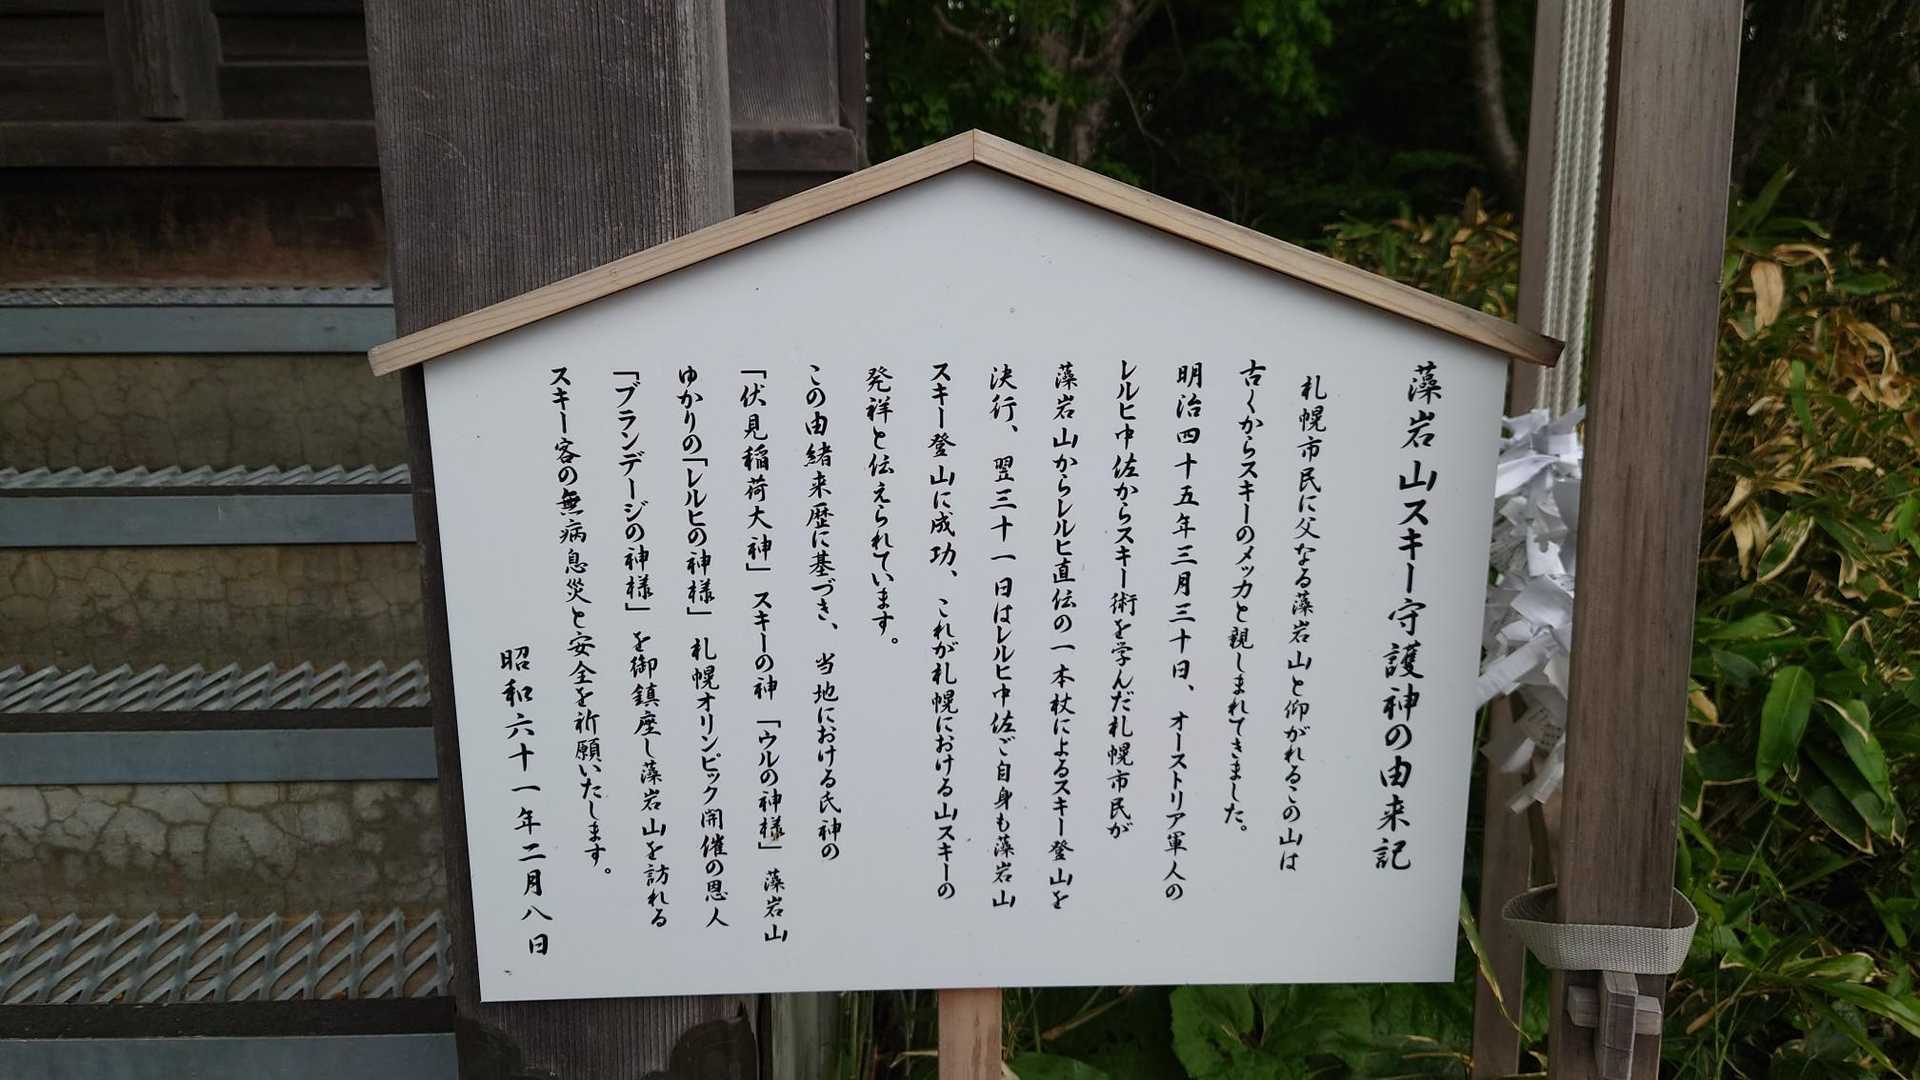 藻岩山スキー守護神の由来記
札幌市民に父なる藻岩山と仰がれるこの山は
古くからスキーのメッカと親しまれてきました。
明治四十五年三月三十日、オーストリア軍人の
レルヒ中佐からスキー術を学んだ札幌市民が
藻岩山からレルヒ直伝の一本杖によるスキー登山を
決行、翌三十一日はレルヒ中佐ご自身も藻岩山
スキー登山に成功、これが札幌における山スキーの
発祥と伝えられています。
この由緒来歴に基づき、当地における氏神の
「伏見稲荷大神」スキーの神「ウルの神様」藻岩山
ゆかりの「レルヒの神様」札幌オリンピック開催の恩人
「ブランデージの神様」を御鎮座し藻岩山を訪れる
スキー客の無病息災と安全を祈願いたします。
昭和六十一年二月八日